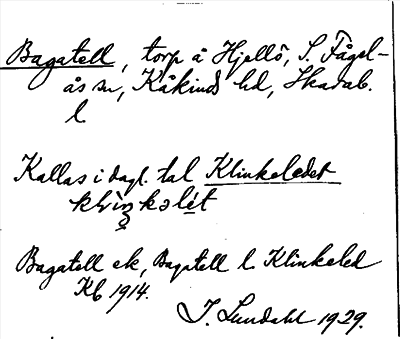 Bagatell, torp å Hjellö, S. Fågel-
ås sn, Kåkinds hd, Skarab.
l
Kallas i dagl. tal Klinkeledet
Bagatell ek, Bagatell l. Klinkeled
Kb 1914.
I. Lundahl 1929.